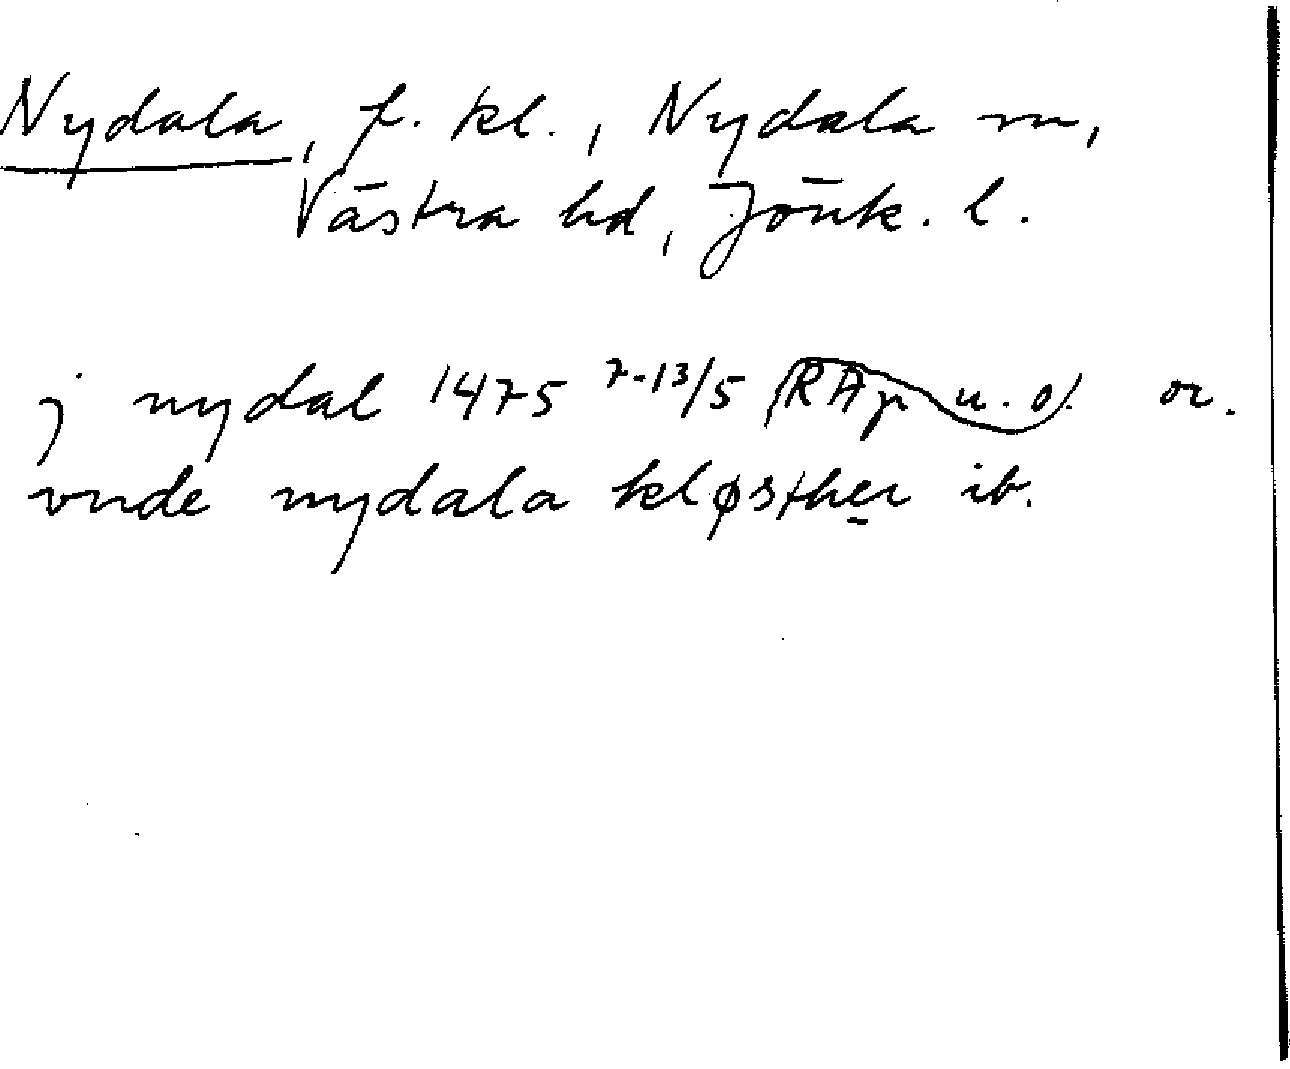 Nydala, f. kl., Nydala sn,
Västra hd, Jönk. l.
j nydal 1475 7-13/5 (RAp u.d.) or.
vnde nydala kløsther ib.